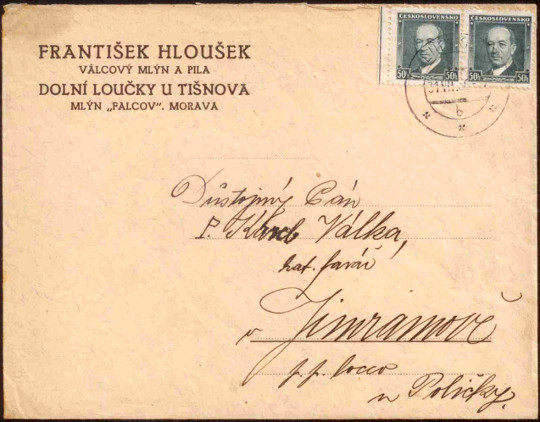 FRANTIŠEK HLOUŠEK
VÁLCOVÝ MLÝN A PILA
DOLNÍ LOUČKY U TIŠNOVA
MLÝN „FALCOV". MORAVA
ČESKOSLOVENSKO
50h 50h
ČESKOSLOVENSKO
50h 50h
b
Důstojný Pán
P. Karel Válka,
kat. farář
v Jimramově
p. p. loco
u Poličky.